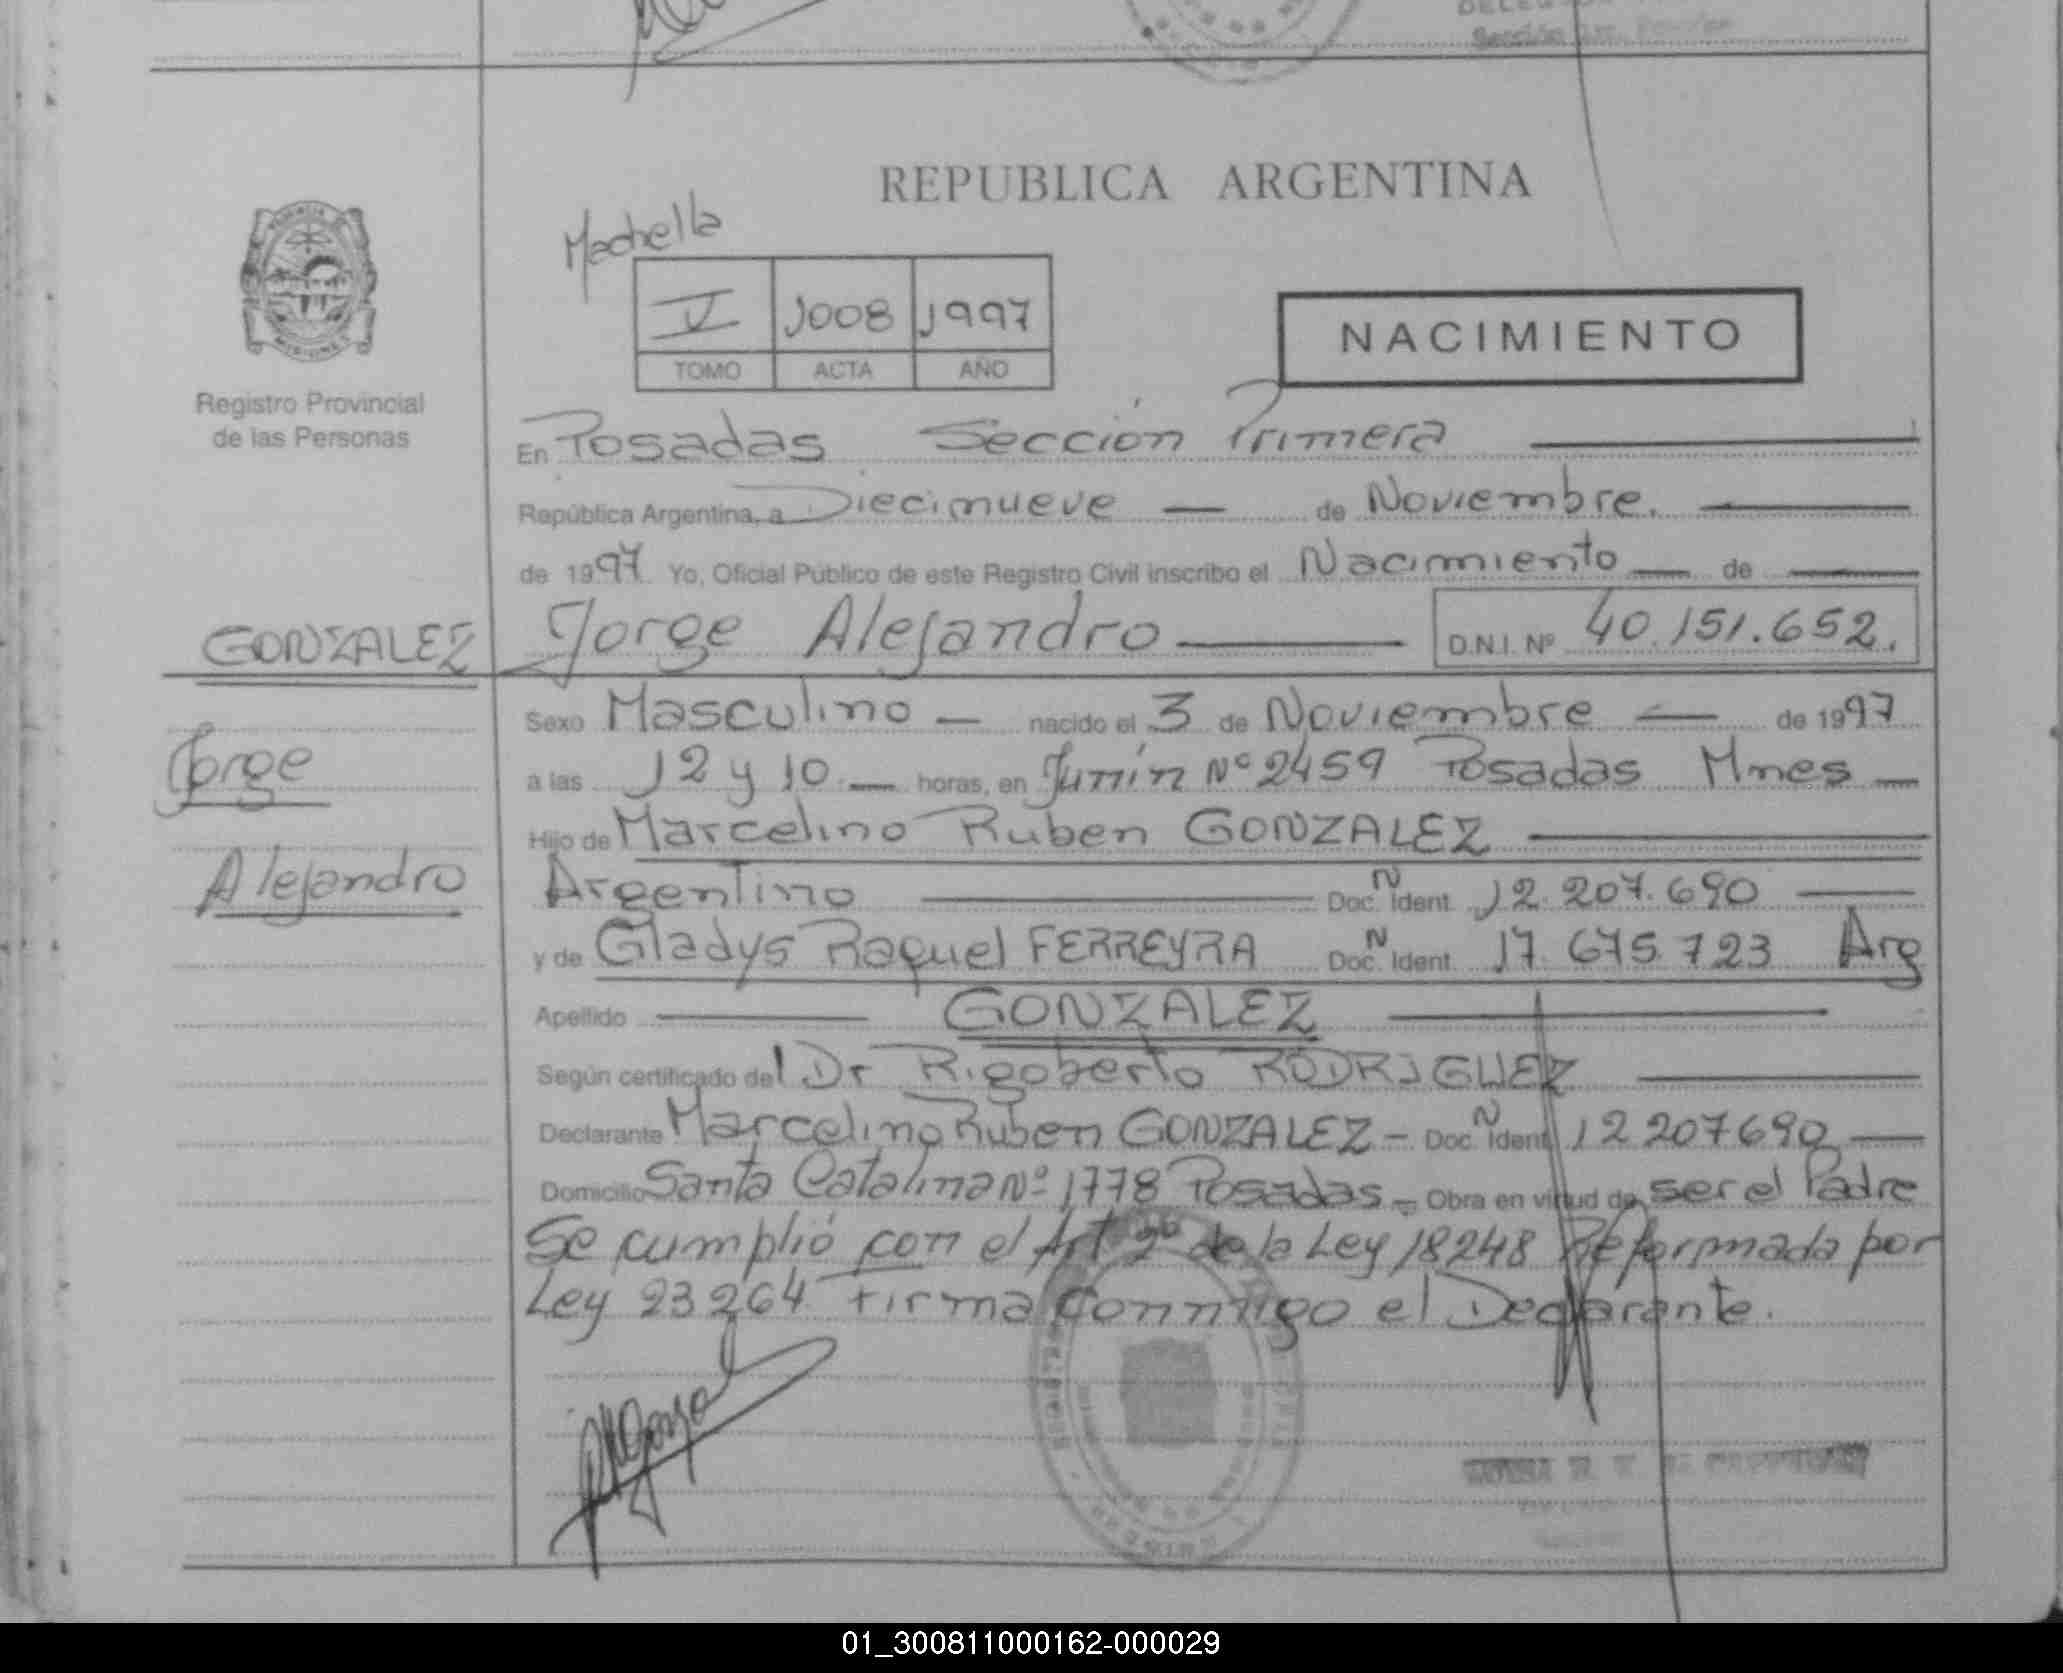 REPUBLICA ARGENTINA
Machella
V 1008 1997
TOMO ACTA AÑO
NACIMIENTO
Registro Provincial
de las Personas
En Posadas Sección Primera
República Argentina, a Diecinueve de Noviembre.
de 1997 Yo, Oficial Público de este Registro Civil inscribo el Nacimiento de
GONZALEZ Jorge Alejandro D.N.I. Nº 40.151.652.
Sexo Masculino nacido el 3 de Noviembre de 1997
Jorge
a las 12 y 10 horas, en Junín Nº 2459 Posadas Mnes
Hijo de Marcelino Ruben GONZALEZ
Alejandro
Argentino Doc. N Ident. 12.207.690
y de Gladys Raquel FERREYRA Doc. N Ident. 17.675.723 Arg
Apellido GONZALEZ
Según certificado del Dr Rigoberto RODRIGUEZ
Declarante Marcelino Ruben GONZALEZ - Doc. N Ident. 12207690
Domicilio Santa Catalina Nº 1778 Posadas - Obra en virtud de ser el Padre
Se cumplió con el Art 2º de la Ley 18248 Reformada por
Ley 23264. Firma Conmigo el Declarante.
01_300811000162-000029